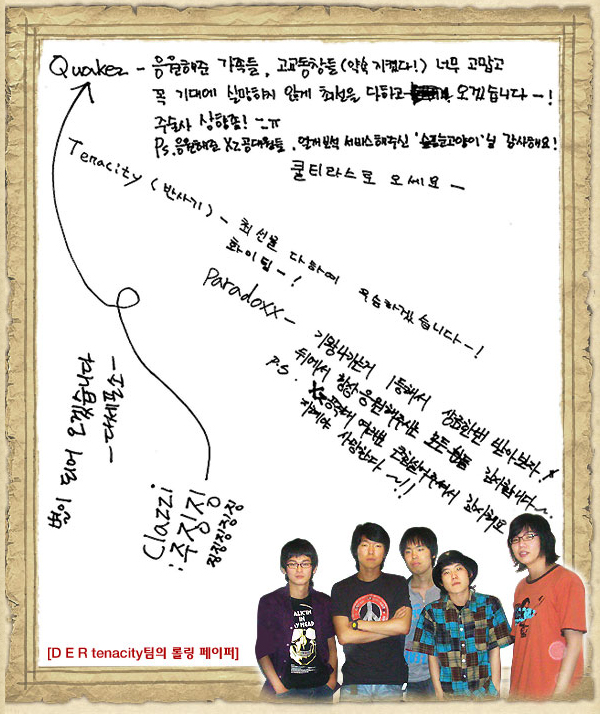 Quakez - 응원해준 가족들, 고교동창들(약속 지켰다!) 너무 고맙고
꼭 기대에 실망하지 않게 최선을 다하고 오겠습니다-!
주술사 상향좀! ㅡㅠ
Ps. 응원해준 Xz공대원들, 서비스해주신 '슬픈고양이'님 감사해요!
쿨티라스로 오세요-
Tenacity (반사기) - 최선을 다하여 우승하겠습니다-!
화이팅-!
Paradoxx - 기왕나가는거 1등해서 상금한번 받아보자!
뒤에서 항상 응원해주시는 모든 감사합니다~.
P.S. 공대 여러분 감사해요
사랑한다~!!
별이 되어 오겠습니다
-다세포소-
Clazzi
:주징징
징징징징징
ALICE IN
MY HEAD
[D E R tenacity팀의 롤링 페이퍼]